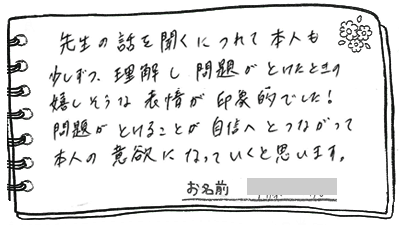 先生の話を聞くにつれて本人も
少しずつ、理解し問題がとけたときの
嬉しそうな表情が印象的でした！
問題がとけることが自信へとつながって
本人の意欲になっていくと思います。
お名前